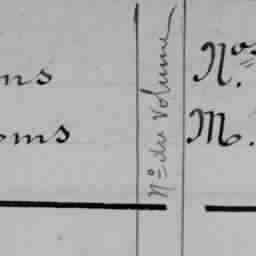 ns
oms
N° du Volume
Nos
M.